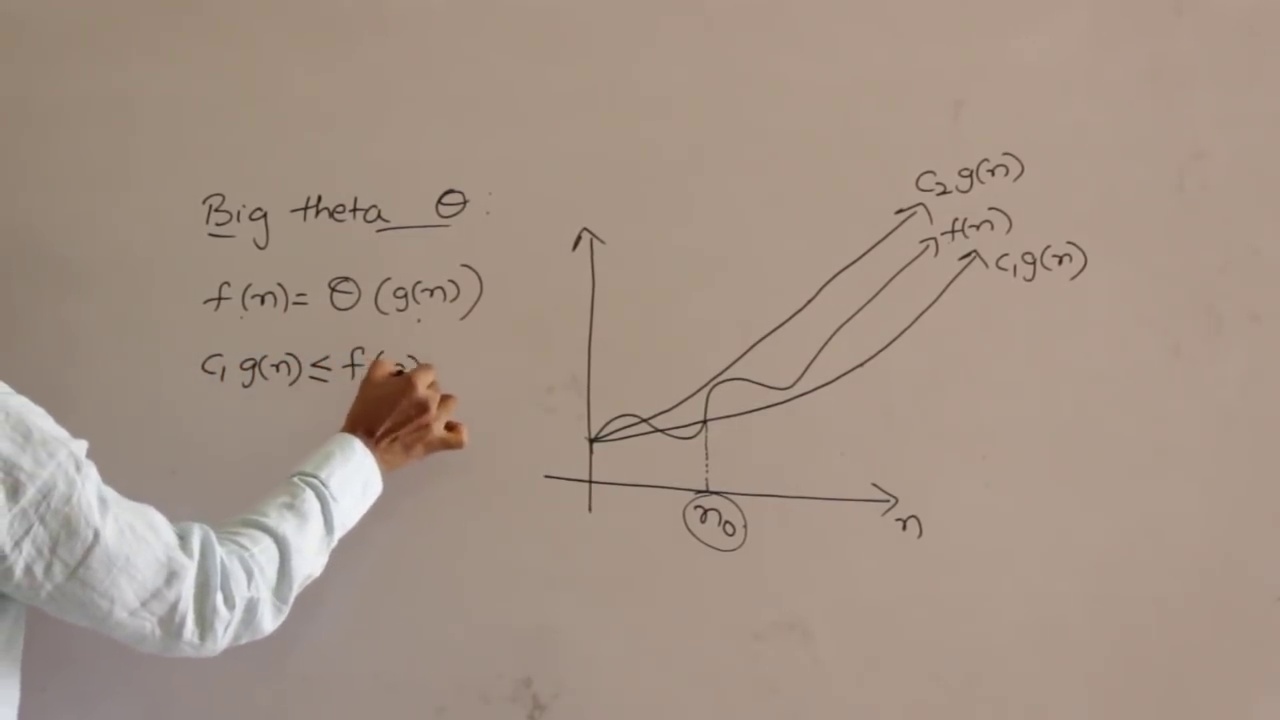 Big theta Θ
f(n) = Θ (g(n))
c₁ g(n) ≤ f(n)
c₂ g(n)
f(n)
c₁ g(n)
n₀
n